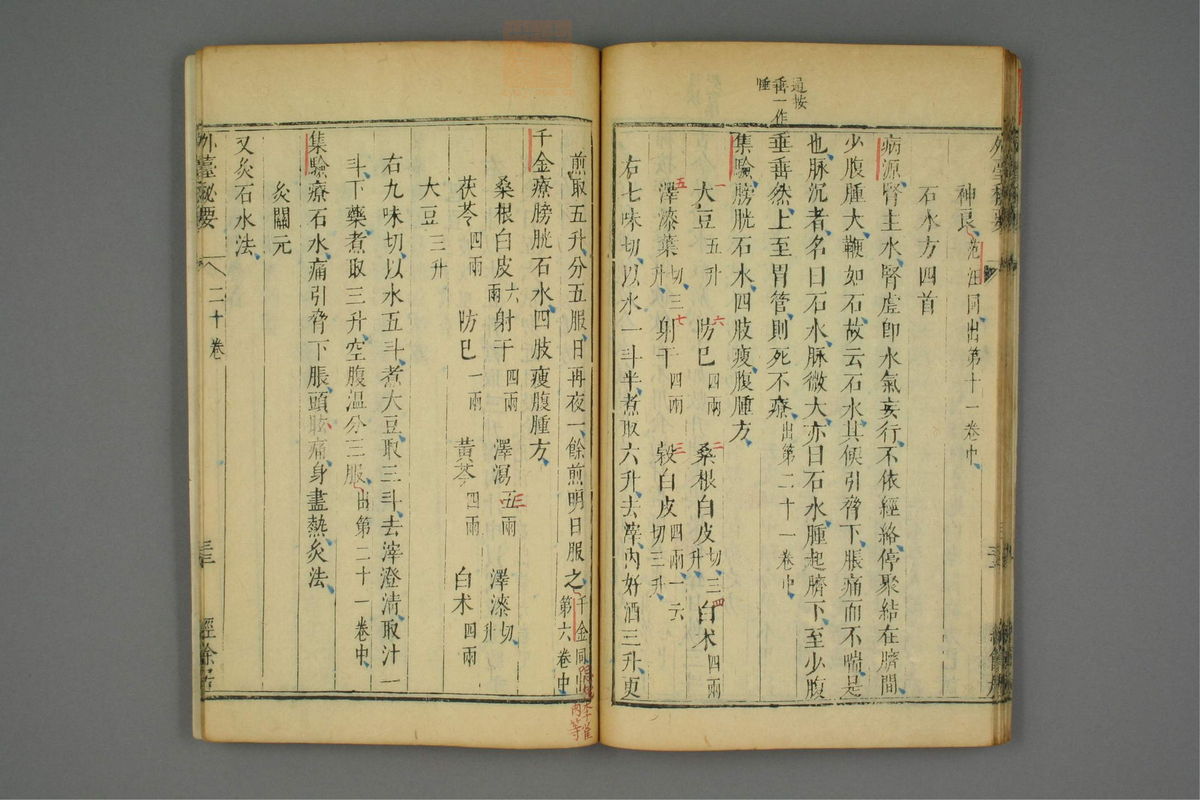 神良范汪同出第十一卷中
石水方四首
病源腎主水腎虛卽水氣妄行不依經絡停聚結在臍間
少腹腫大鞕如石故云石水其候引脅下脹痛而不喘是
也脉沉者名曰石水脉微大亦曰石水腫起臍下至少腹
垂垂然上至胃管則死不療出第二十一卷中
逼按
垂一作
腄
集驗膀胱石水四肢瘦腹腫方
一大豆五升 六防巳四兩 二桑根白皮切三升 四白朮四兩
五澤漆葉切三升 七射干四兩 三榖白皮四兩一云切三升
右七味切以水一斗半煮取六升去滓內好酒三升更
煎取五升分五服日再夜一餘煎明日服之千金同出第六卷中
千金療膀胱石水四肢瘦腹腫方
桑根白皮六兩 射干四兩 澤瀉五兩 三 澤漆切升
茯苓四兩 防巳一兩 黃芩四兩 白朮四兩
大豆三升
右九味切以水五斗煮大豆取三斗去滓澄清取汁一
斗下藥煮取三升空腹溫分三服出第二十一卷中
集驗療石水痛引脅下脹頭眩痛身盡熱灸法
灸關元
又灸石水法
外臺秘要 二十卷 三三 經餘居